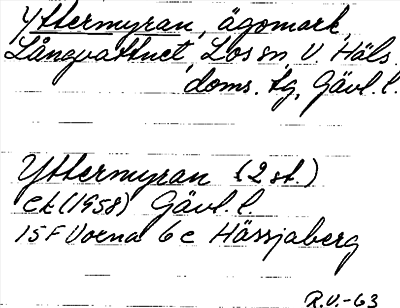 Yttermyran, ägomark,
Långvattnet, Los sn, V. Häls.
doms. tg, Gävl. l.
Yttermyran (2 st.)
Ek (1958) Gävl. l.
15F Voxna 6c Hässjaberg
R.V.-63